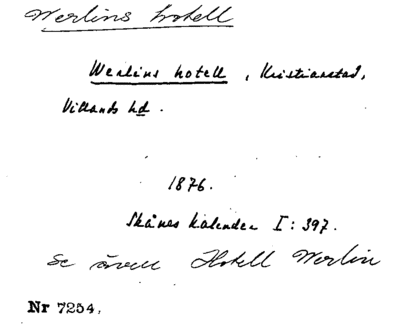 Werlins hotell
Werlins hotell, Kristianstad,
Villands hd.
1876.
Skånes kalender I: 397.
Se även Hotell Werlin
Nr 7254,